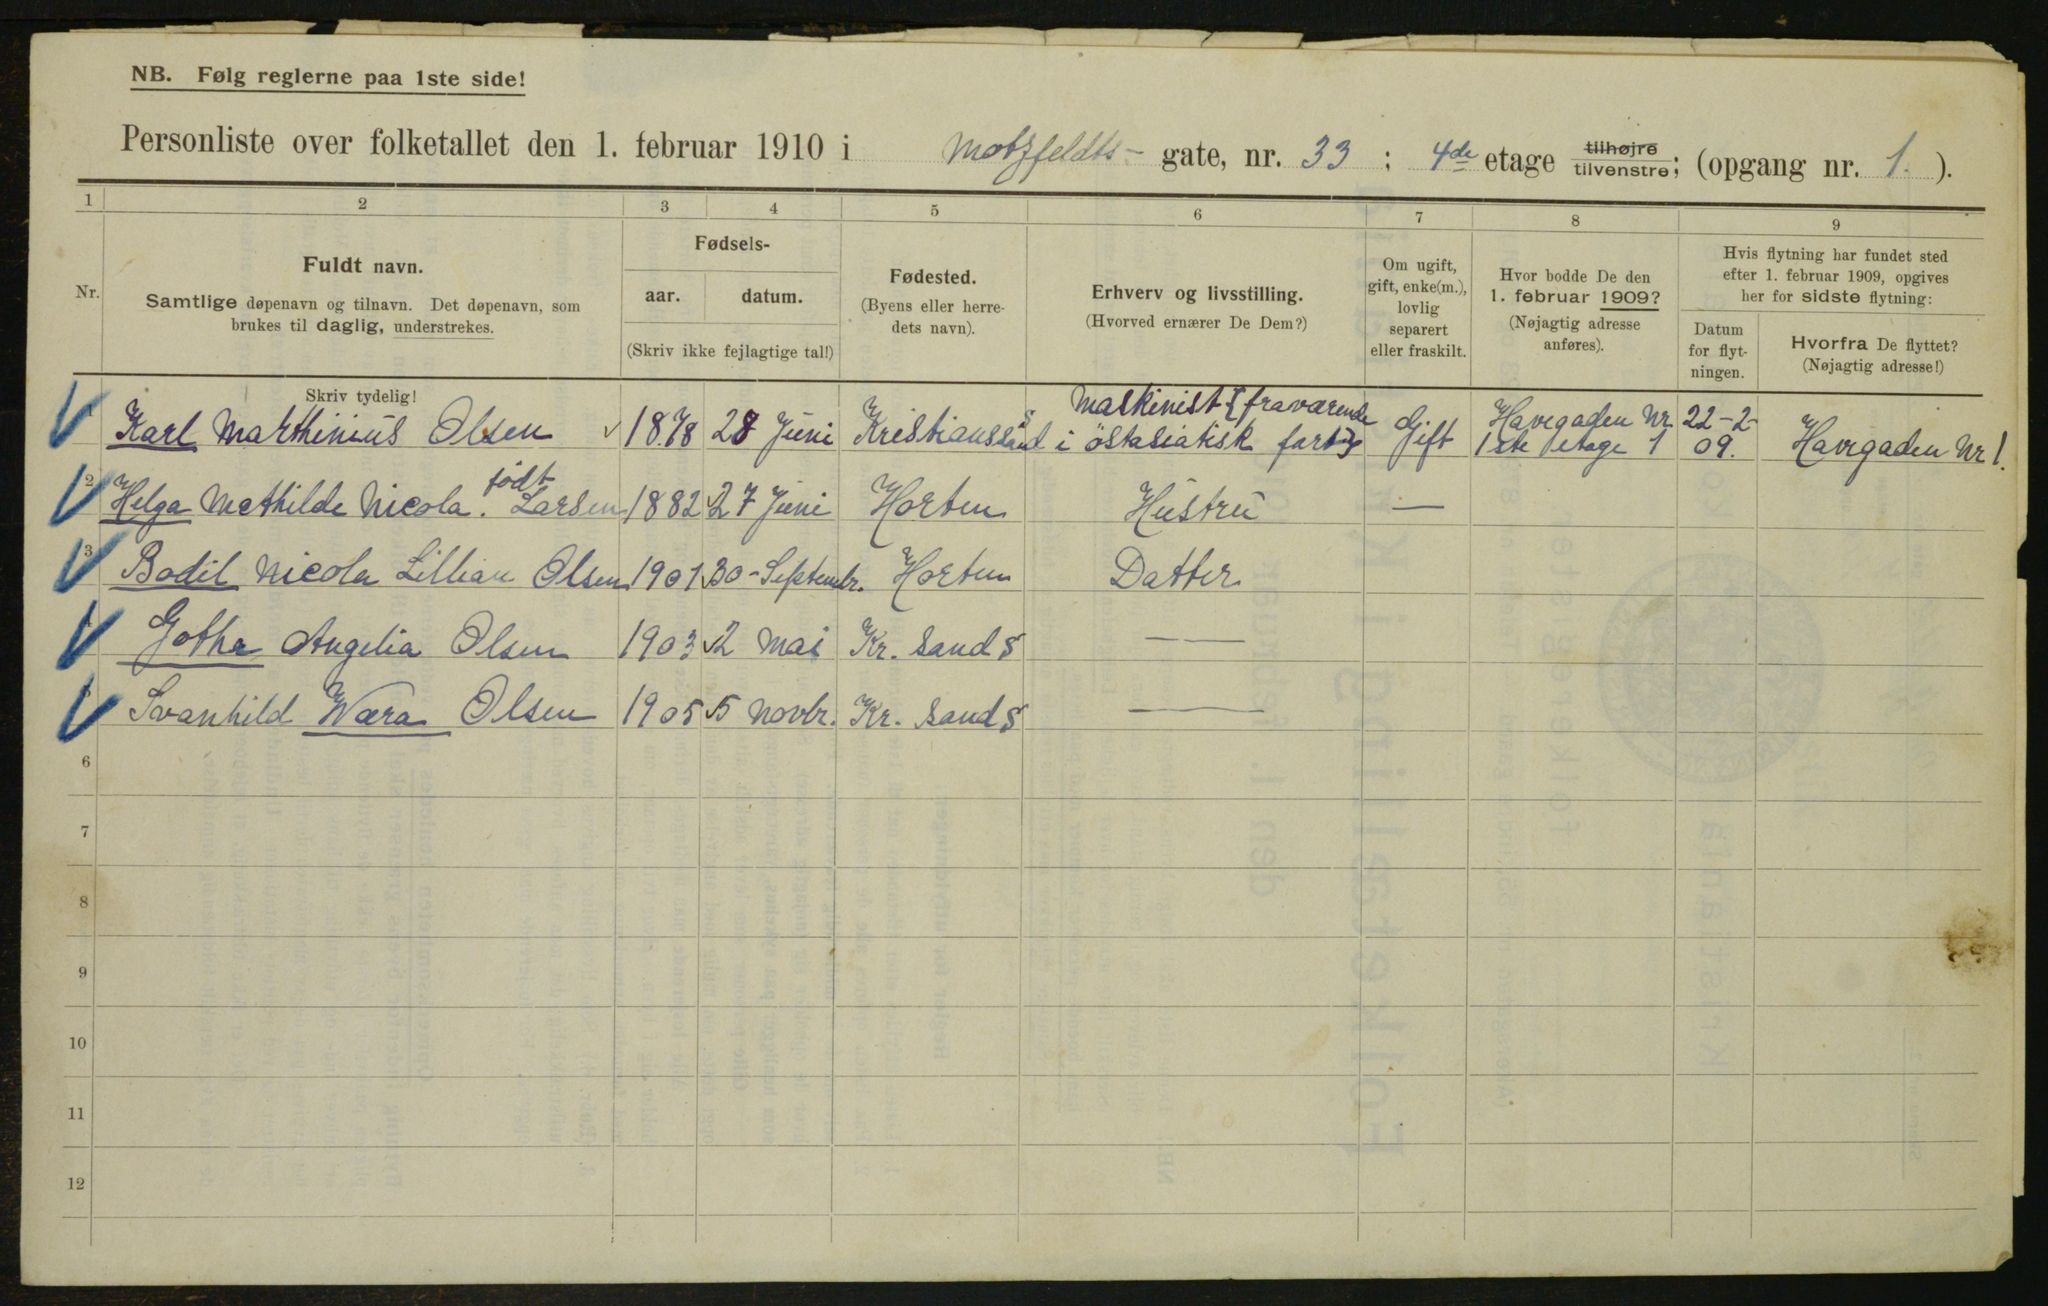 NB. Følg reglerne paa 1ste side!
Personliste over folketallet den 1. februar 1910 i Motzfeldts- gate, nr. 33 ; 4de etage tilhøjre / tilvenstre; (opgang nr. 1. ).
1 2 3 4 5 6 7 8 9
Nr.
Fuldt navn.
Samtlige døpenavn og tilnavn. Det døpenavn, som
brukes til daglig, understrekes.
Skriv tydelig!
Fødsels-
aar. datum.
(Skriv ikke fejlagtige tal!)
Fødested.
(Byens eller herre-
dets navn).
Erhverv og livsstilling.
(Hvorved ernærer De Dem?)
Om ugift,
gift, enke(m.),
lovlig
separert
eller fraskilt.
Hvor bodde De den
1. februar 1909?
(Nøjagtig adresse
anføres).
Hvis flytning har fundet sted
efter 1. februar 1909, opgives
her for sidste flytning:
Datum
for flyt-
ningen.
Hvorfra De flyttet?
(Nøjagtig adresse!)
1 Karl Marthinius Olsen 1878 28 Juni Kristianssand S Maskinist (fraværende i östasiatisk fart) Gift Havegaden Nr 1 1ste etage 22-2-09. Havegaden Nr 1.
2 Helga Mathilde Nicola. födt Larsen 1882 27 Juni Horten Hustru —
3 Bodil Nicola Lillian Olsen 1901 30 - Septembr. Horten Datter
4 Gotha Angelia Olsen 1903 2 Mai Kr. Sand S — —
5 Svanhild Wæra Olsen 1905 5 Novbr. Kr. Sand S ——
6
7
8
9
10
11
12